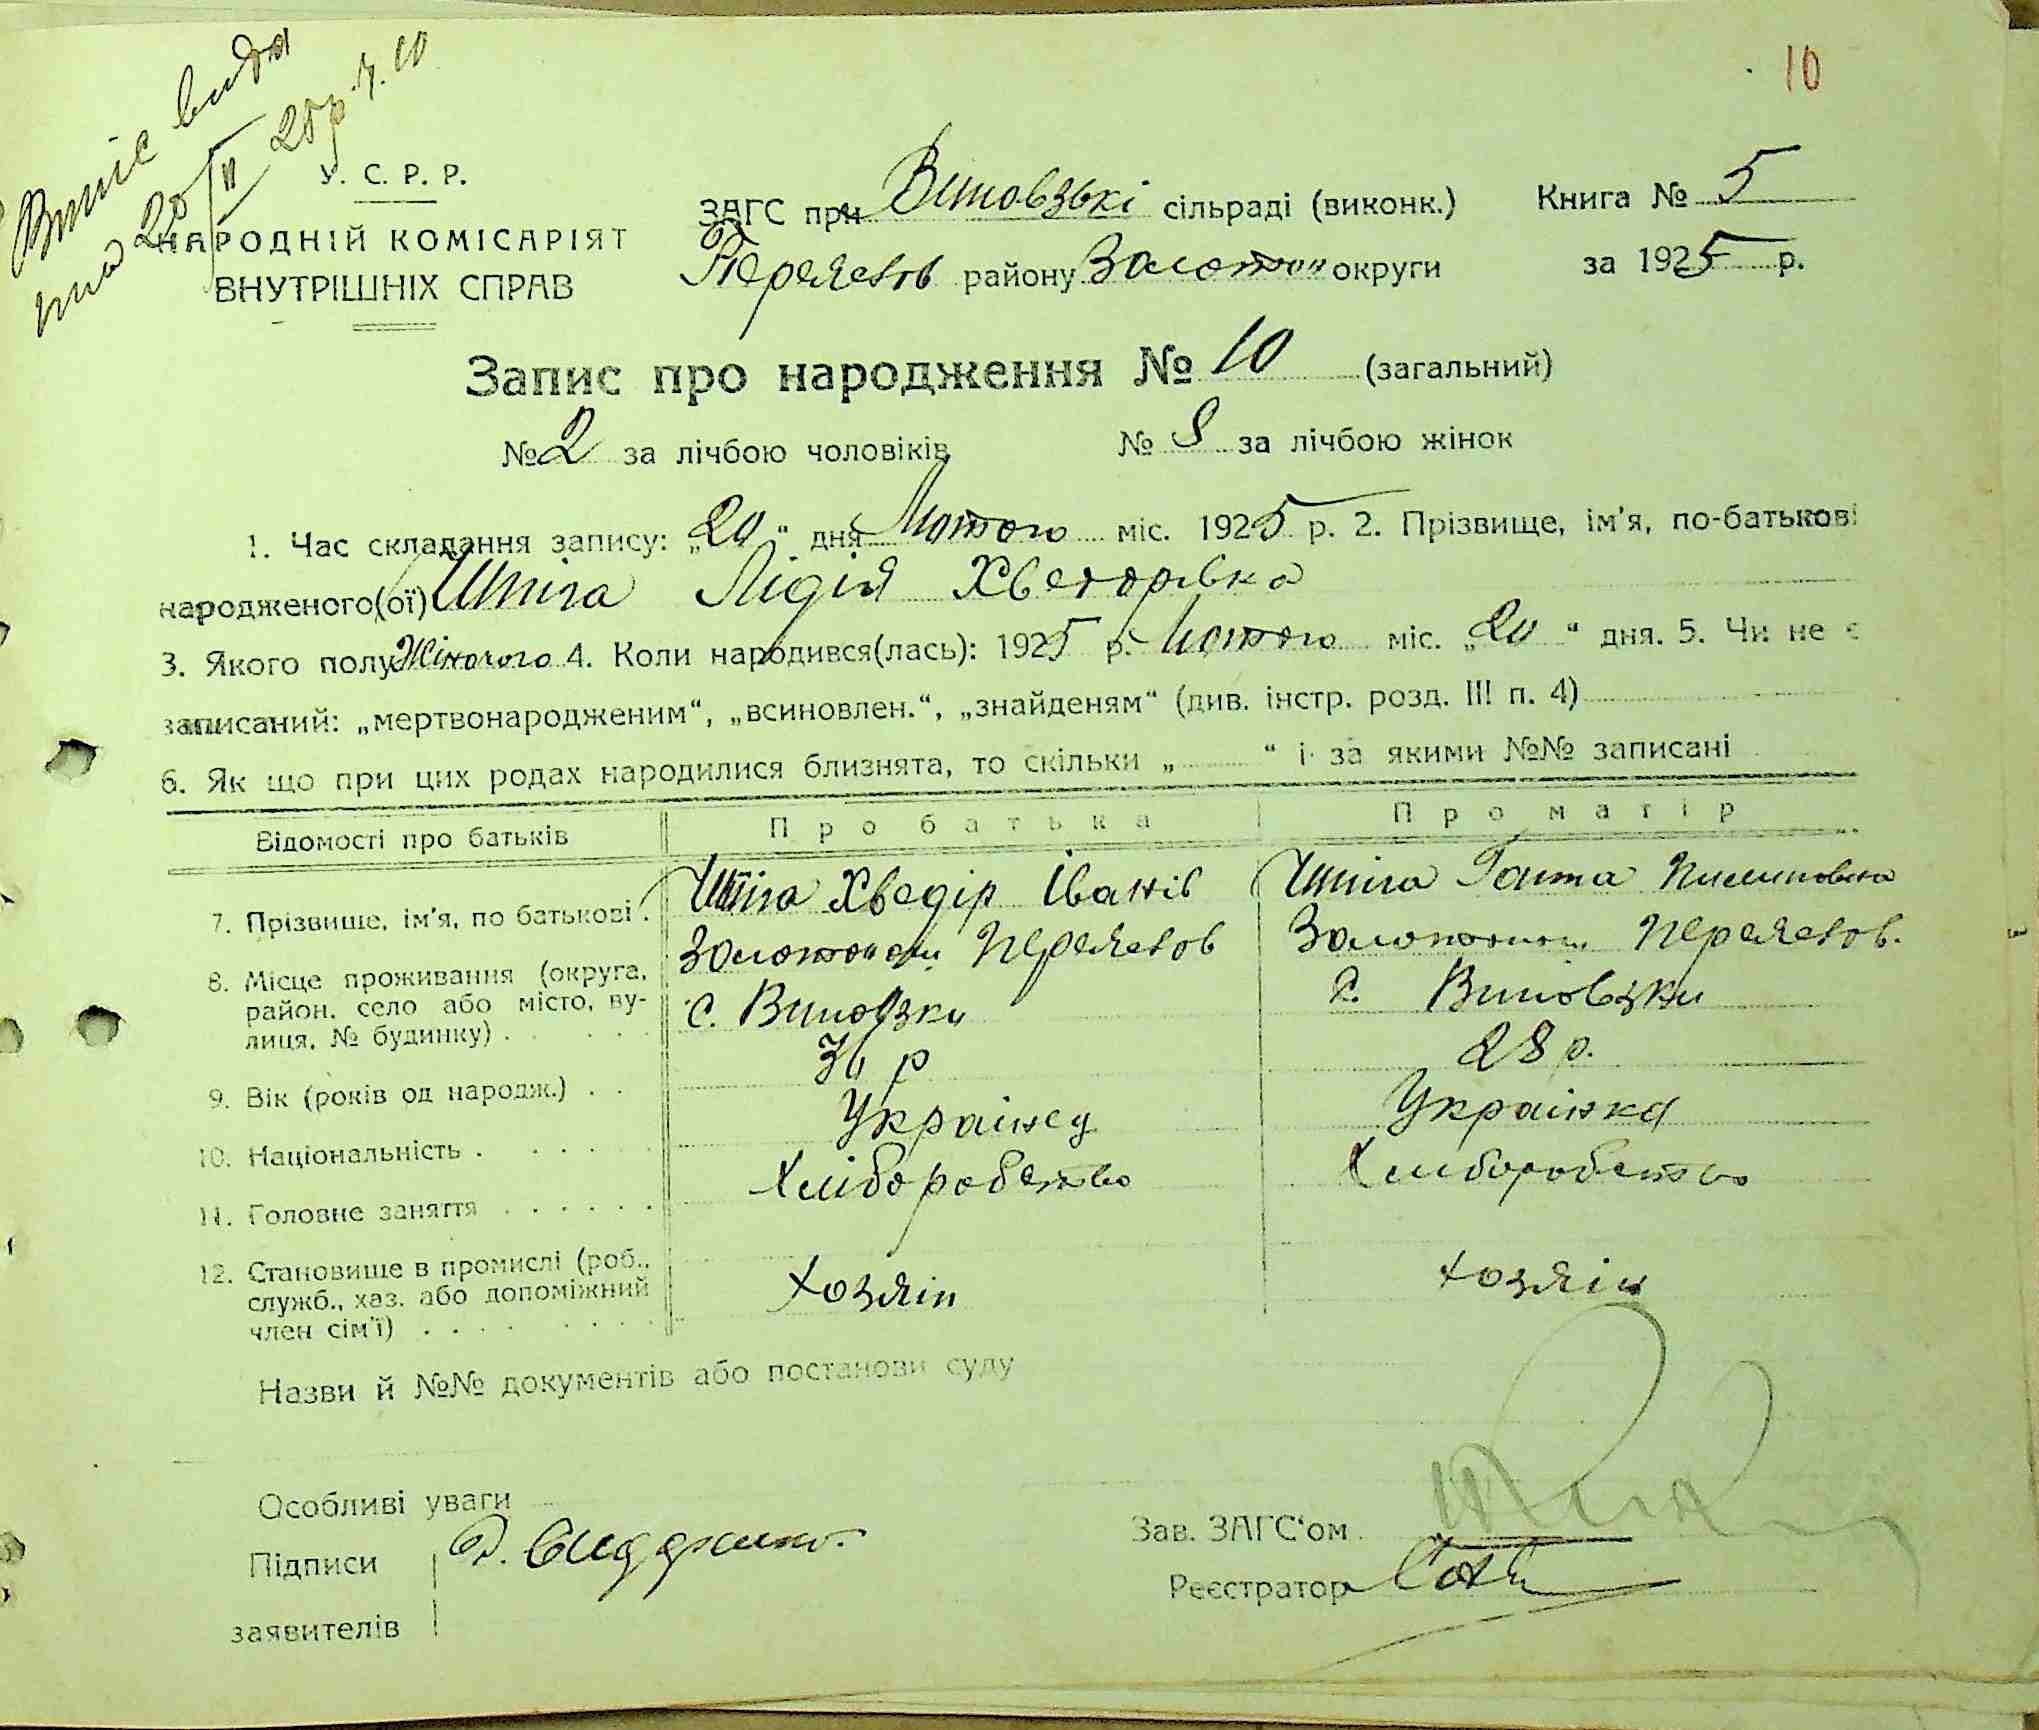 Випіс вида
на 20/II 25р. ч. 10
10
У. С. Р. Р.
НАРОДНІЙ КОМІСАРІЯТ
ВНУТРІШНІХ СПРАВ
ЗАГС при Виповзькі сільраді (виконк.)
Книга № 5
Переяслов району Золотон округи
за 1925 р.
Запис про народження № 10 (загальний)
№ 2 за лічбою чоловіків
№ 8 за лічбою жінок
1. Час складання запису: „20“ дня Лютого міс. 1925 р. 2. Прізвище, ім'я, по-батькові
народженого(ої) Шпіга Лідія Хведорівна
3. Якого полу Жіночого 4. Коли народився(лась): 1925 р. Лютого міс. „20“ дня. 5. Чи не є
записаний: „мертвонародженим“, „всиновлен.“, „знайденям“ (див. інстр. розд. III п. 4)
6. Як що при цих родах народилися близнята, то скільки „ “ і за якими №№ записані
Відомості про батьків
Про батька
Про матір
7. Прізвище, ім'я, по батькові .
Шпіга Хведір Іванів
Шпіга Ганна
8. Місце проживання (округа,
район, село або місто, ву-
лиця, № будинку) .
Золотонош Переяслов
с. Виповзки
Золотонош Переяслов.
с. Виповзки
9. Вік (років од народж.) . .
р
28 р.
10. Національність .
Українец
Українка
11. Головне заняття
Хліборобство
Хліборобство
12. Становище в промислі (роб.,
служб., хаз. або допоміжний
член сім'ї)
хозяін
хозяін
Назви й №№ документів або постанови суду
Особливі уваги
Підписи
заявителів
Зав. ЗАГС'ом
Реєстратор